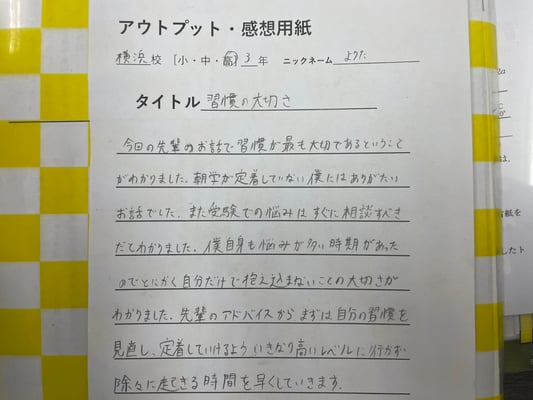 アウトプット・感想用紙
横浜校 [小・中・高] 3年 ニックネーム ようた
タイトル 習慣の大切さ
今回の先輩のお話で習慣が最も大切であるということ
がわかりました。朝学が定着していない僕にはありがたい
お話でした。また受験での悩みはすぐに相談すべき
だてわかりました。僕自身も悩みが多い時期があった
のでとにかく自分だけで抱え込まないことの大切さが
わかりました。先輩のアドバイスからまずは自分の習慣を
見直し、定着していけるよういきなり高いレベルに行かず
除々に起きる時間を早くしていきます。